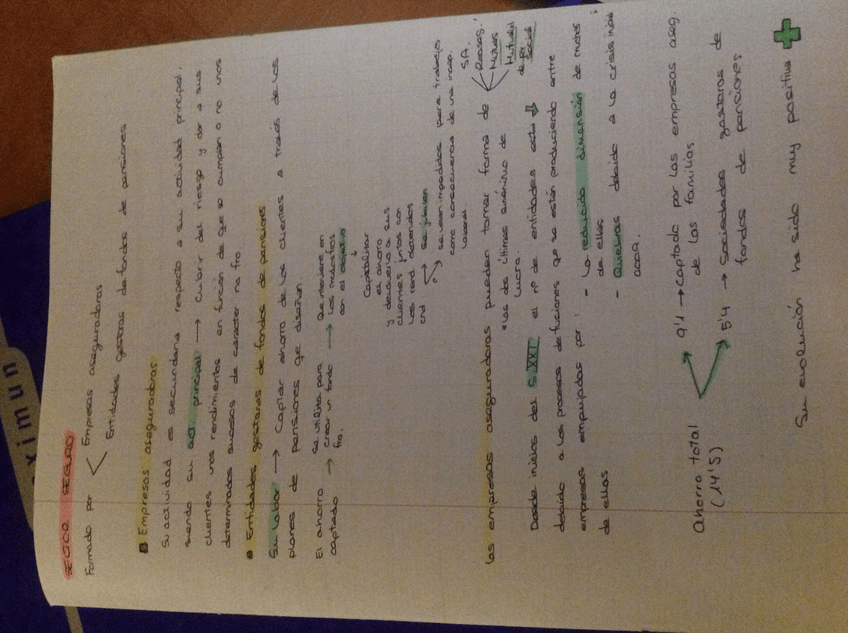 SECTOR SEGURO
Formado por < Empresas aseguradoras
Entidades gestoras de fondos de pensiones
Empresas aseguradoras
Su actividad es secundaria respecto a su actividad principal,
siendo su act principal → Cubrir del riesgo y dar a sus
clientes unos rendimientos en función de que se cumplan o no unos
determinados sucesos de carácter no fro
Entidades gestoras de fondos de pensiones
Su labor → Captar ahorro de los clientes a través de los
planes de pensiones que diseñan
El ahorro captado → se utiliza para crear un fondo fro. → Que interviene en los mdos fros con el objetivo
↓
Capitalizar
el ahorro
y devolverlo a sus
clientes juntos con
los rend. obtenidos
cnd → se jubilen
→ se vean impedidos para trabajar
como consecuencia de una incap.
laboral.
Las empresas aseguradoras pueden tomar forma de
SA.
Reaseg.
Mutuas
Mutualid de pr. social
*Las dos últimas sin ánimo de
lucro.
Desde inicios del S.XXI el nº de entidades está ↓
debido a los procesos de fusiones que se están produciendo entre
empresas empujadas por:
- La reducida dimensión de muchas
de ellas
- Quiebras debido a la crisis
2009.
de ellas
Ahorro total
(14'5)
9'1 → Captado por las empresas aseg.
de las familias
5'4 → Sociedades gestoras de
fondos de pensiones
Su evolución ha sido muy positiva +
ximun